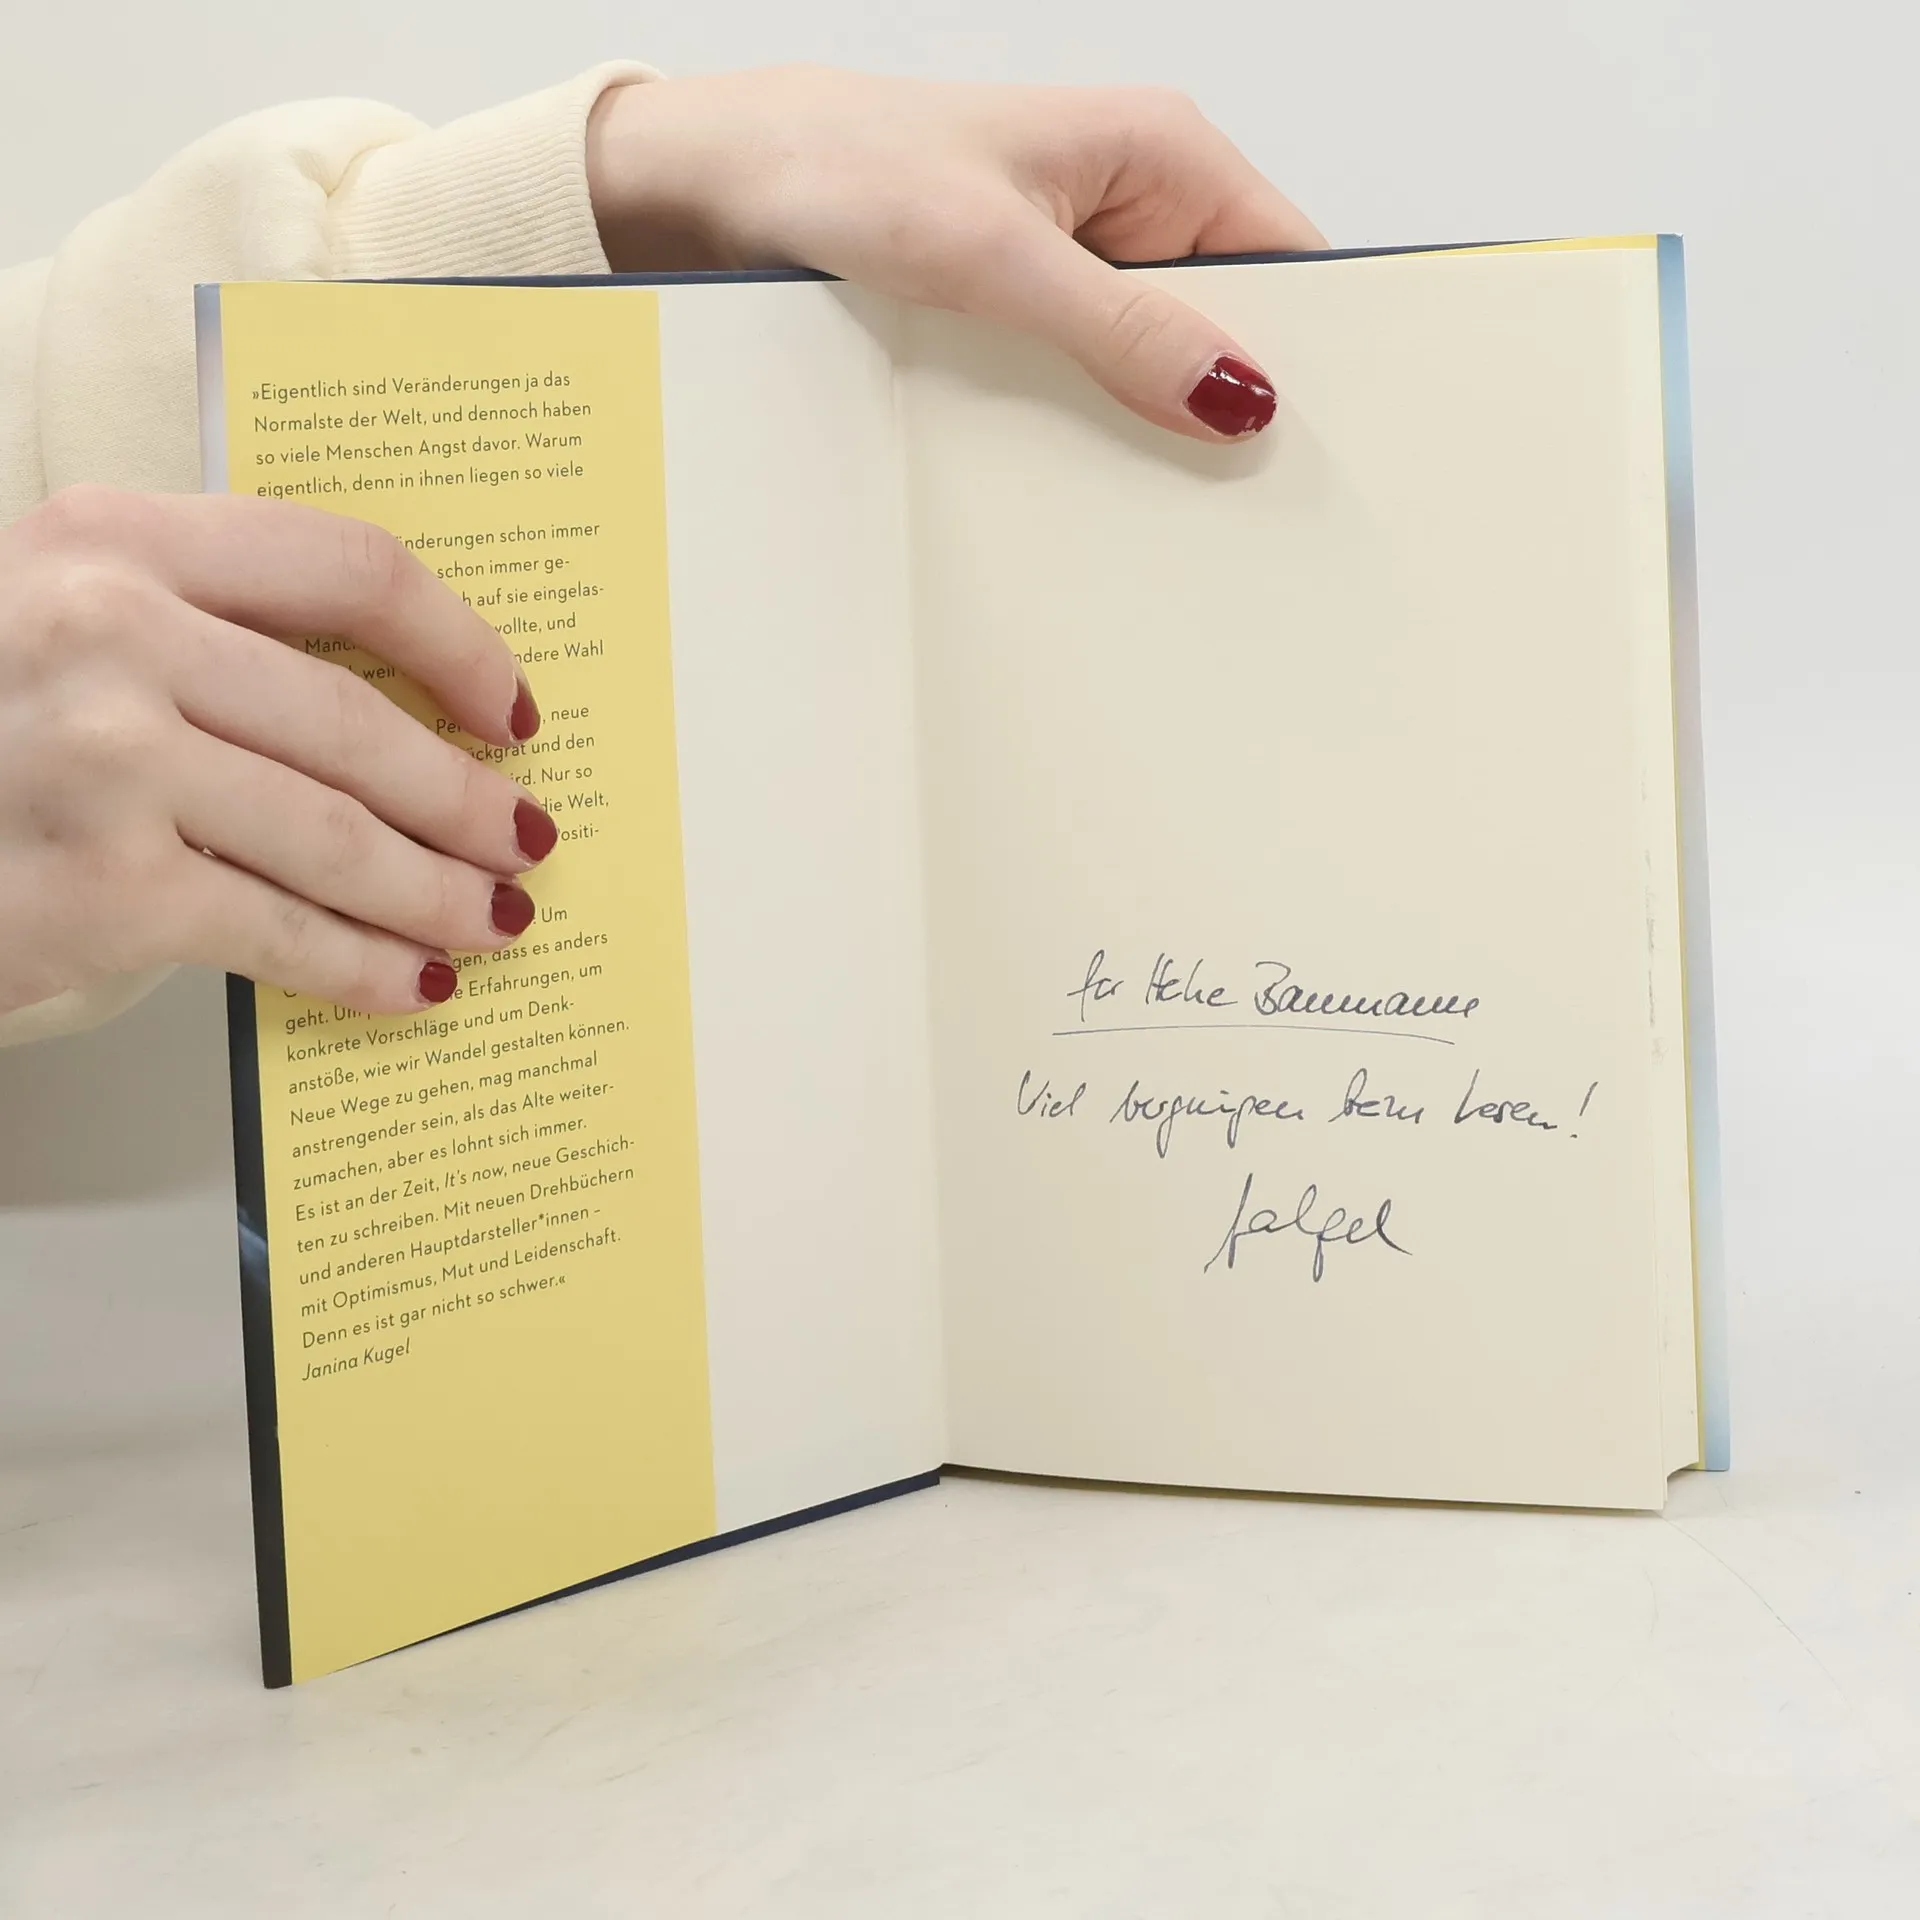 »Eigentlich sind Veränderungen ja das
Normalste der Welt, und dennoch haben
so viele Menschen Angst davor. Warum
eigentlich, denn in ihnen liegen so viele
nderungen schon immer
schon immer ge-
auf sie eingelas-
wollte, und
ndere Wahl
weil
, neue
ckgrat und den
ird. Nur so
die Welt,
Positi-
. Um
gen, dass es anders
e Erfahrungen, um
geht. Um
konkrete Vorschläge und um Denk-
anstöße, wie wir Wandel gestalten können.
Neue Wege zu gehen, mag manchmal
anstrengender sein, als das Alte weiter-
zumachen, aber es lohnt sich immer.
Es ist an der Zeit, It's now, neue Geschich-
ten zu schreiben. Mit neuen Drehbüchern
und anderen Hauptdarsteller*innen –
mit Optimismus, Mut und Leidenschaft.
Denn es ist gar nicht so schwer.«
Janina Kugel
für Baumann
Viel Vergnügen beim Lesen!